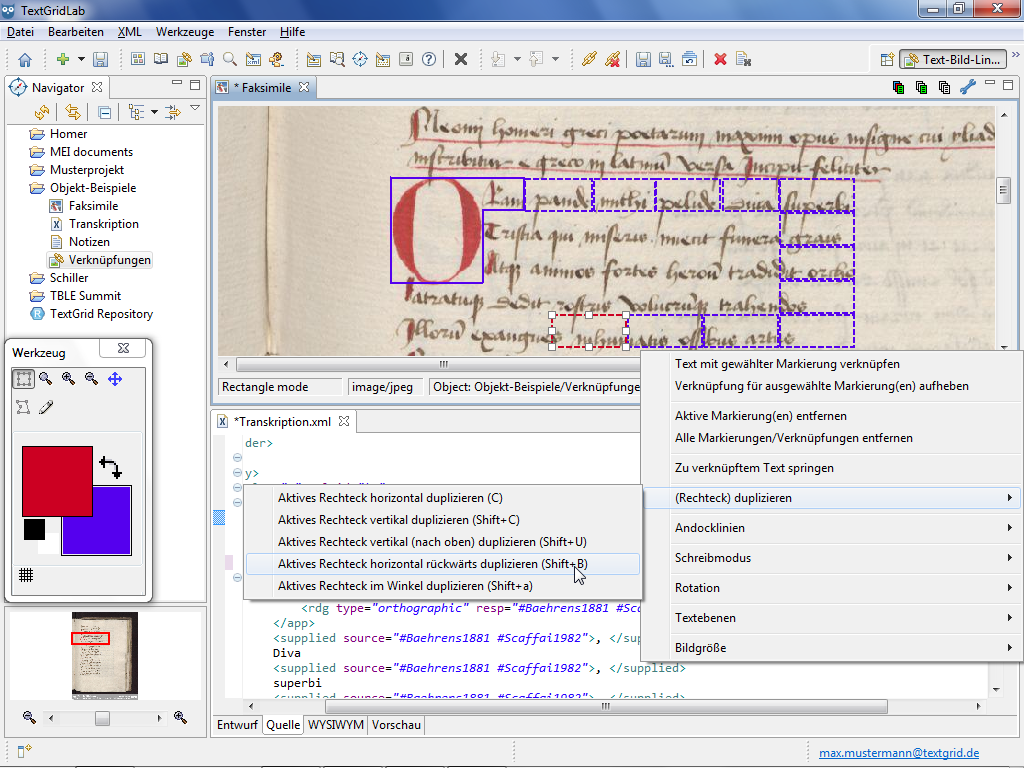 TextGridLab
Datei Bearbeiten XML Werkzeuge Fenster Hilfe
Text-Bild-Lin...
Navigator
Homer
MEI documents
Musterprojekt
Objekt-Beispiele
Faksimile
Transkription
Notizen
Verknüpfungen
Schiller
TBLE Summit
TextGrid Repository
Werkzeug
* Faksimile
homeri greci poetarum opus insigne cui
e greco in latinum versa Incipit feliciter
pande michi
Tristia qui miseris iniecit funera grais
Atque animos fortes heroum tradidit
dedit rostris trahendos
artis
Rectangle mode
image/jpeg
Object: Objekt-Beispiele/Verknüpfunge
Text mit gewählter Markierung verknüpfen
Verknüpfung für ausgewählte Markierung(en) aufheben
Aktive Markierung(en) entfernen
Alle Markierungen/Verknüpfungen entfernen
Zu verknüpftem Text springen
(Rechteck) duplizieren
Andocklinien
Schreibmodus
Rotation
Textebenen
Bildgröße
*Transkription.xml
der>
y>
Aktives Rechteck horizontal duplizieren (C)
Aktives Rechteck vertikal duplizieren (Shift+C)
Aktives Rechteck vertikal (nach oben) duplizieren (Shift+U)
Aktives Rechteck horizontal rückwärts duplizieren (Shift+B)
Aktives Rechteck im Winkel duplizieren (Shift+a)
<rdg type="orthographic" resp="#Baehrens1881 #Sca
</app>
<supplied source="#Baehrens1881 #Scaffai1982">, </su
Diva
<supplied source="#Baehrens1881 #Scaffai1982">, </supplied>
superbi
<supplied source="#Baehrens1881 #Scaffai1982">, </supplied>
Entwurf Quelle WYSIWYM Vorschau
max.mustermann@textgrid.de